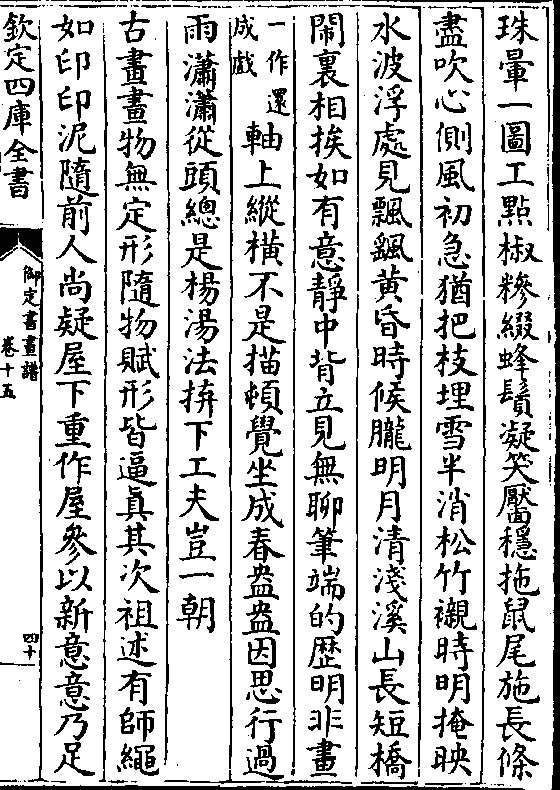 珠暈一圖工點椒糝綴蜂鬚凝笑靨穩拖鼠尾施長條
盡吹心側風初急猶把枝埋雪半消松竹襯時明掩映
水波浮處見飄颻黃昏時候朧明月清淺溪山長短橋
閙裏相挨如有意靜中背立見無聊筆端的歴明非畫
一作還
成戲
軸上縱橫不是描頓覺坐成春盎盎因思行過
雨瀟瀟從頭總是楊湯法拚下工夫豈一朝
古畫畫物無定形隨物賦形皆逼真其次祖述有師繩
如印印泥隨前人尚疑屋下重作屋參以新意意乃足
欽定四庫全書
御定書畫譜
卷十五
四十